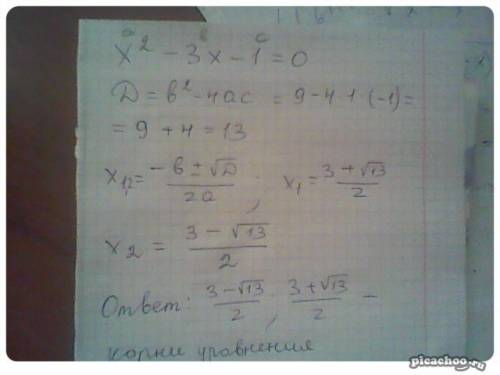 a в c
x² - 3x - 1 = 0
D = в² - 4ac = 9 - 4·1·(-1) =
= 9 + 4 = 13
x₁,₂ = (-в ± √D)/2a, x₁ = (3 + √13)/2
x₂ = (3 - √13)/2
Ответ: (3 - √13)/2, (3 + √13)/2 -
корни уравнения
picachoo.ru